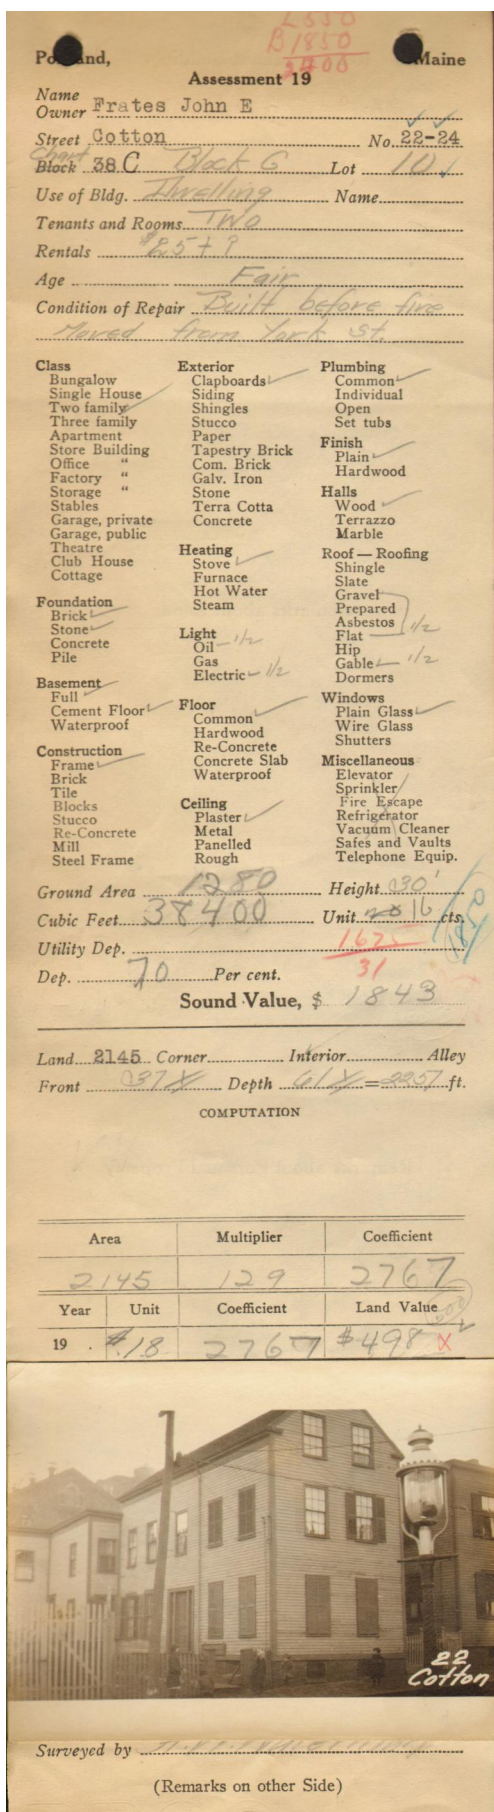 L550
B1850
2400
Portland, Maine
Assessment 19
Name
Owner Frates John E
Street Cotton No. 22-24
Chart
Block 38 C Block G Lot 10
Use of Bldg. Dwelling Name
Tenants and Rooms Two
Rentals $25 + ?
Age Fair
Condition of Repair Built before fire
Moved from York St.
Class
Bungalow
Single House
Two family
Three family
Apartment
Store Building
Office "
Factory "
Storage "
Stables
Garage, private
Garage, public
Theatre
Club House
Cottage
Foundation
Brick
Stone
Concrete
Pile
Basement
Full
Cement Floor
Waterproof
Construction
Frame
Brick
Tile
Blocks
Stucco
Re-Concrete
Mill
Steel Frame
Exterior
Clapboards
Siding
Shingles
Stucco
Paper
Tapestry Brick
Com. Brick
Galv. Iron
Stone
Terra Cotta
Concrete
Heating
Stove
Furnace
Hot Water
Steam
Light
Oil 1/2
Gas
Electric 1/2
Floor
Common
Hardwood
Re-Concrete
Concrete Slab
Waterproof
Ceiling
Plaster
Metal
Panelled
Rough
Plumbing
Common
Individual
Open
Set tubs
Finish
Plain
Hardwood
Halls
Wood
Terrazzo
Marble
Roof — Roofing
Shingle
Slate
Gravel
Prepared
Asbestos
Flat 1/2
Hip
Gable 1/2
Dormers
Windows
Plain Glass
Wire Glass
Shutters
Miscellaneous
Elevator
Sprinkler
Fire Escape
Refrigerator
Vacuum Cleaner
Safes and Vaults
Telephone Equip.
Ground Area 1280 Height 30'
Cubic Feet 38400 Unit 16 cts.
Utility Dep. 1675
31
Dep. 70 Per cent.
Sound Value, $ 1843
Land 2145 Corner Interior Alley
Front 37 X Depth 61 X = 2257 ft.
COMPUTATION
Area Multiplier Coefficient
2145 129 2767
Year Unit Coefficient Land Value
19 . $.18 2767 $498 X
22
Cotton
Surveyed by
(Remarks on other Side)